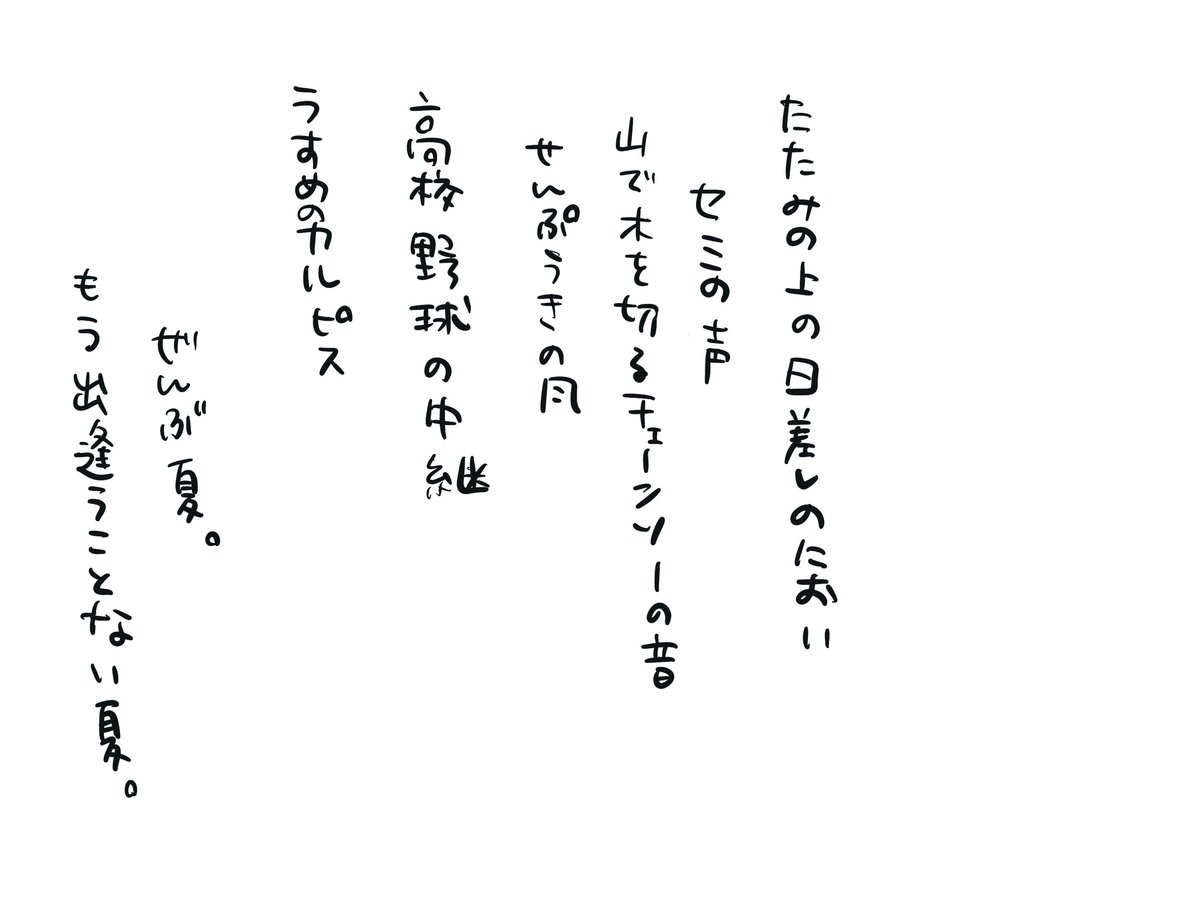 たたみの上の日差しのにおい
セミの声
山で木を切るチェーンソーの音
せんぷうきの風
高校野球の中継
うすめのカルピス
ぜんぶ夏。
もう出逢うことない夏。